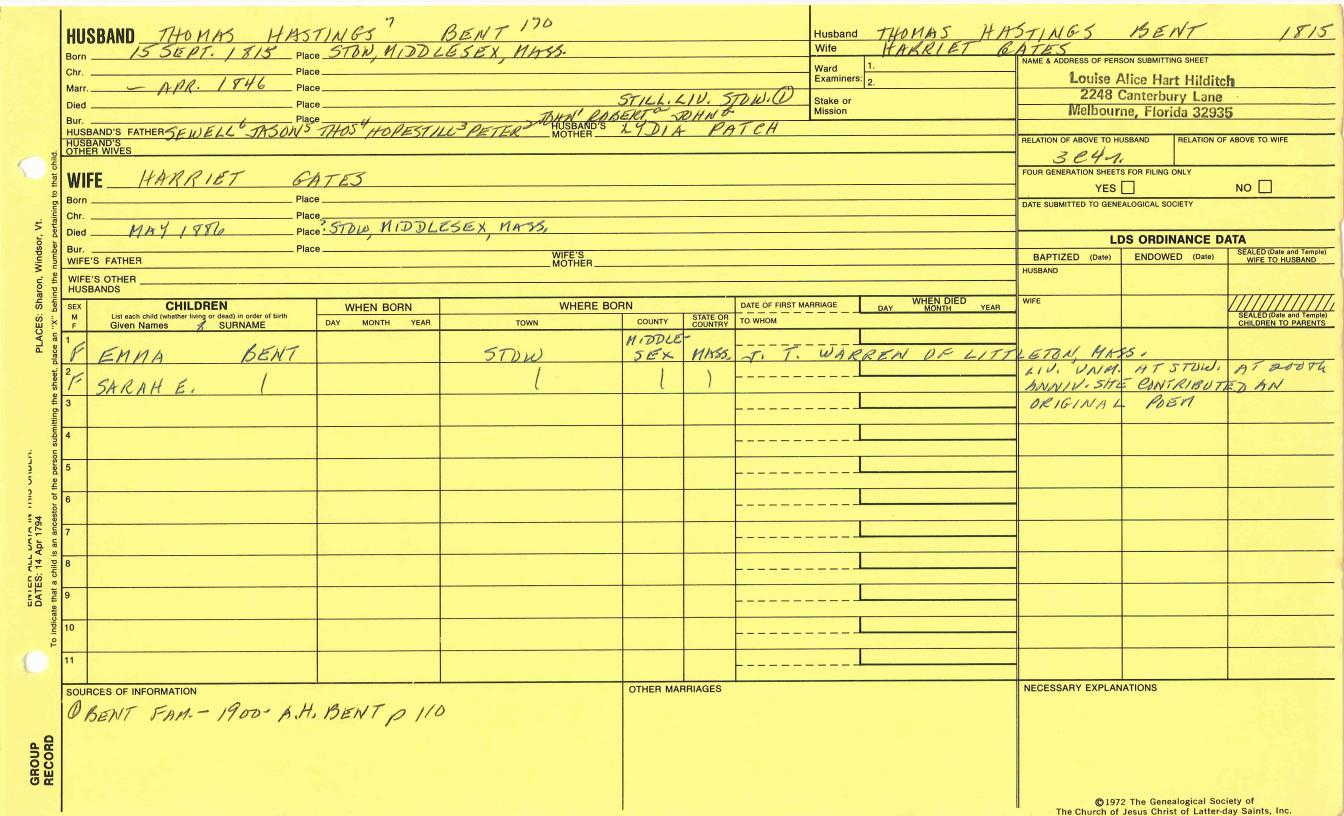 HUSBAND THOMAS HASTINGS 7 BENT 170
Born 15 SEPT. 1815 Place STOW, MIDDLESEX, MASS.
Chr. Place
Marr. — APR. 1846 Place
Died Place STILL LIV. STOW. ①
Bur. Place JOHN1 ROBERTa JOHNb
HUSBAND'S FATHER SEWELL6 JASON5 THOS4 HOPESTILL3 PETER2 HUSBAND'S MOTHER LYDIA PATCH
HUSBAND'S OTHER WIVES
WIFE HARRIET GATES
Born Place
Chr. Place
Died MAY 1886 Place ?STOW, MIDDLESEX, MASS.
Bur. Place
WIFE'S FATHER WIFE'S MOTHER
WIFE'S OTHER HUSBANDS
Husband THOMAS HASTINGS BENT 1815
Wife HARRIET GATES
Ward Examiners: 1.
2.
Stake or Mission
NAME & ADDRESS OF PERSON SUBMITTING SHEET
Louise Alice Hart Hilditch
2248 Canterbury Lane
Melbourne, Florida 32935
RELATION OF ABOVE TO HUSBAND RELATION OF ABOVE TO WIFE
3C4r.
FOUR GENERATION SHEETS FOR FILING ONLY
YES NO
DATE SUBMITTED TO GENEALOGICAL SOCIETY
LDS ORDINANCE DATA
BAPTIZED (Date) ENDOWED (Date) SEALED (Date and Temple) WIFE TO HUSBAND
HUSBAND
WIFE
SEALED (Date and Temple) CHILDREN TO PARENTS
SEX M F
CHILDREN
List each child (whether living or dead) in order of birth
Given Names & SURNAME
WHEN BORN
DAY MONTH YEAR
WHERE BORN
TOWN COUNTY STATE OR COUNTRY
DATE OF FIRST MARRIAGE
TO WHOM
WHEN DIED
DAY MONTH YEAR
1 F EMMA BENT STOW MIDDLE-SEX MASS. J. T. WARREN OF LITTLETON, MASS.
2 F SARAH E. LIV. UNM. AT STOW. AT 200TH
ANNIV. SHE CONTRIBUTED AN
3 ORIGINAL POEM
4
5
6
7
8
9
10
11
SOURCES OF INFORMATION
① BENT FAM. — 1900 - A.H. BENT p 110
OTHER MARRIAGES
NECESSARY EXPLANATIONS
©1972 The Genealogical Society of
The Church of Jesus Christ of Latter-day Saints, Inc.
ENTER ALL DATA IN THIS ORDER:
DATES: 14 Apr 1794 PLACES: Sharon, Windsor, Vt.
To indicate that a child is an ancestor of the person submitting the sheet, place an "X" behind the number pertaining to that child.
GROUP RECORD